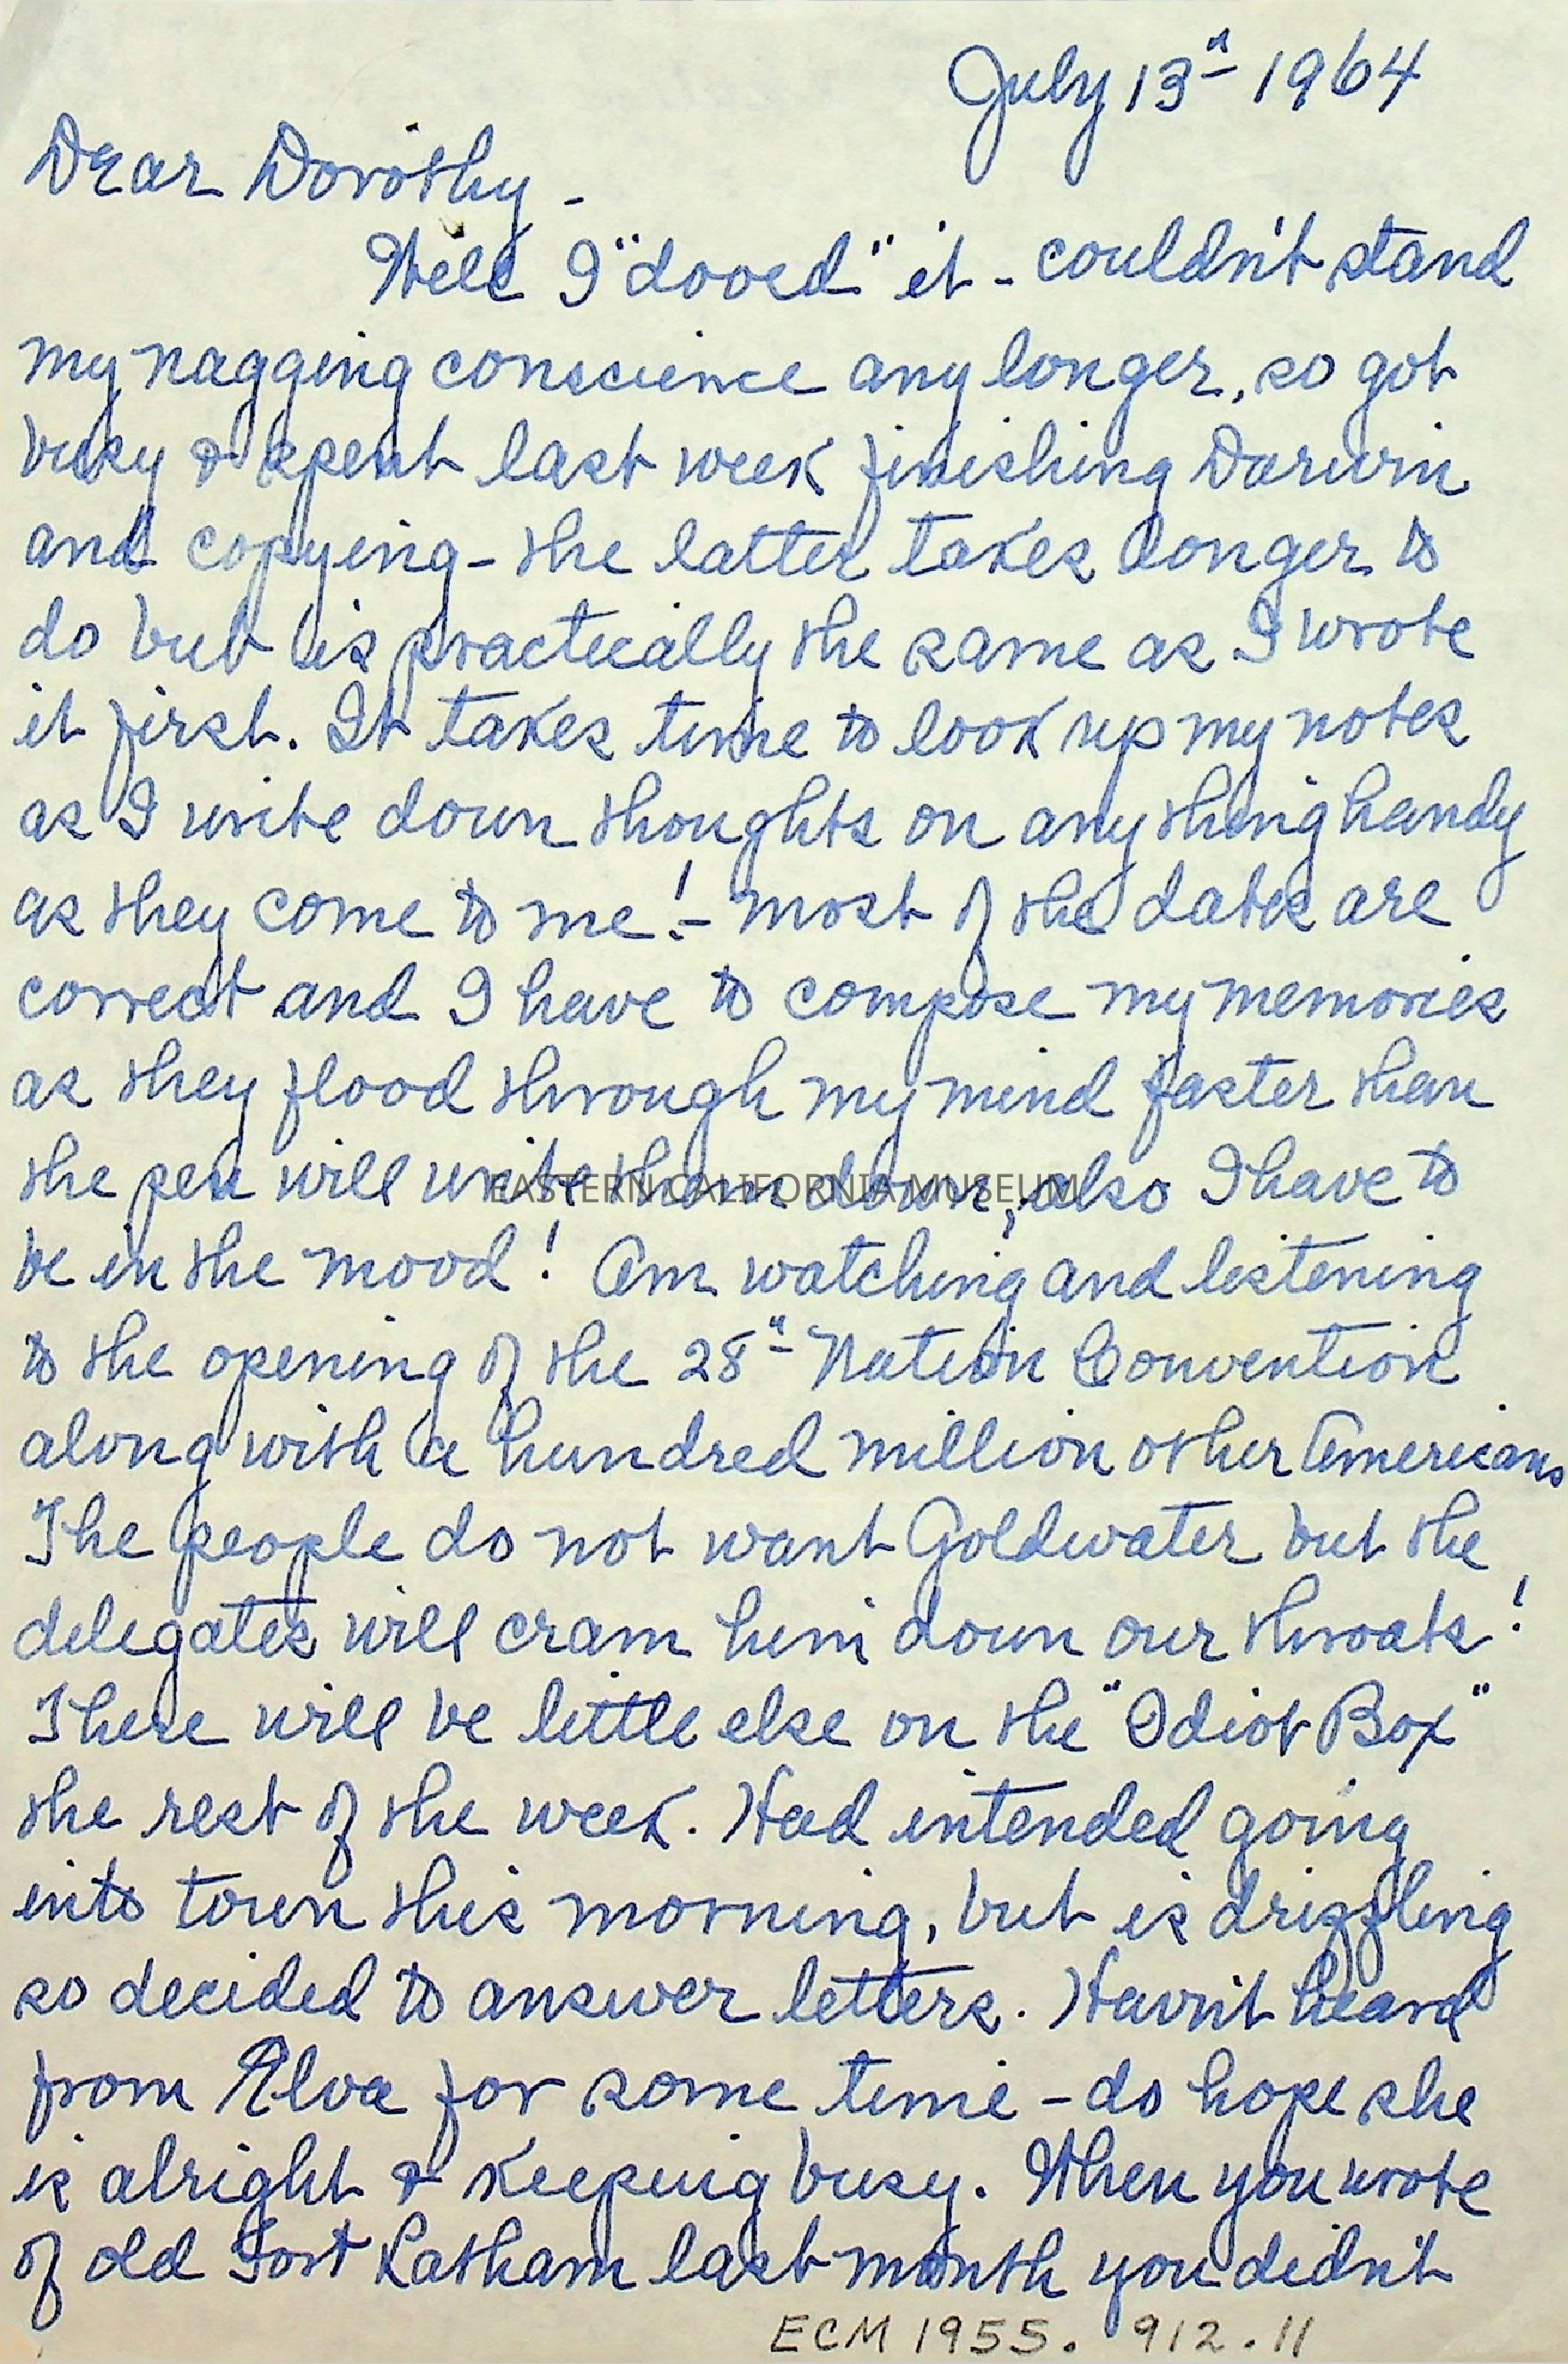 July 13" 1964
Dear Dorothy -
Well I "dooed" it - couldn't stand
my nagging conscience any longer, so got
busy & spent last week finishing Darwin
and copying - the latter takes longer to
do but is practically the same as I wrote
it first. It takes time to look up my notes
as I write down thoughts on anything handy
as they come to me! - most of the dates are
correct and I have to compose my memories
as they flood through my mind faster than
the pen will write them down, also I have to
EASTERN CALIFORNIA MUSEUM
be in the mood! Am watching and listening
to the opening of the 28" Nation Convention
along with a hundred million other Americans
The people do not want Goldwater but the
delegates will cram him down our throats!
There will be little else on the "Idiot Box"
the rest of the week. Had intended going
into town this morning, but is drizzling
so decided to answer letters. Havn't heard
from Elva for some time - do hope she
is alright & keeping busy. When you wrote
of old Fort Latham last month you didn't
ECM 1955. 912.11